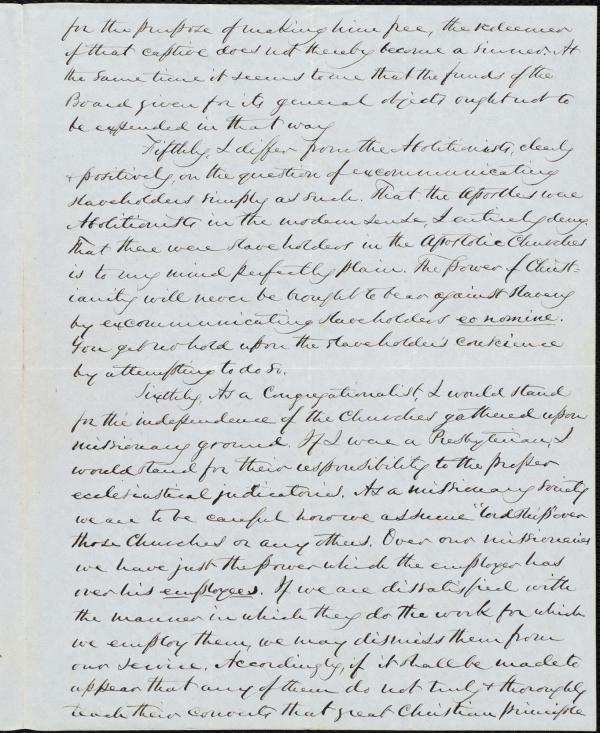 for the purpose of making him free, the redeemer
of that captive does not thereby become a sinner. At
the same time it seems to me that the funds of the
Board given for its general objects ought not to
be expended in that way
Fifthly, I differ from the Abolitionists, clearly
& positively, on the question of excommunicating
slaveholders simply as such. That the Apostles were
Abolitionists in the modern sense, I entirely deny.
That there were slaveholders in the Apostolic Churches
is to my mind perfectly plain. The power of Christ-
ianity will never be brought to bear against slavery
by excommunicating slaveholders eo nomine.
You get no hold upon the slaveholder's conscience
by attempting to do so.
Sixthly, As a Congregationalist, I would stand
for the independence of the Churches gathered upon
missionary ground. If I were a Presbyterian, I
would stand for their responsibility to the proper
ecclesiastical judicatories. As a missionary society
we are to be careful how we assume "lordship" over
those Churches or any others. Over our missionaries
we have just the power which the employer has
over his employees. If we are dissatisfied with
the manner in which they do the work for which
we employ them, we may dismiss them from
our service. Accordingly, if it shall be made to
appear that any of them do not truly & thoroughly
teach their converts that great Christian principle